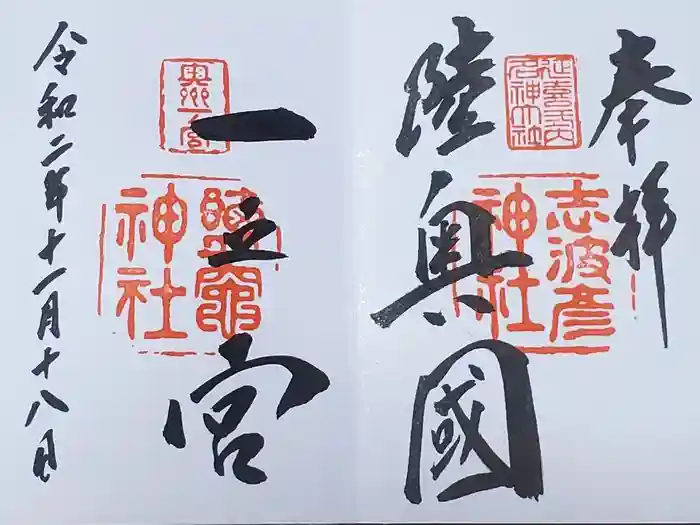 奉拝
延喜式内名神大社
志波彦神社
陸奥國
奥州一宮
鹽竈神社
一之宮
令和二年十一月十八日